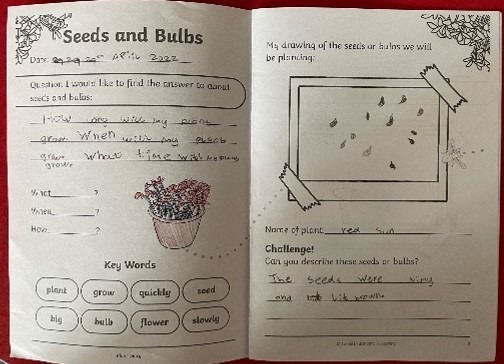 Seeds and Bulbs
Date: April 2022
Question I would like to find the answer to about
seeds and bulbs:
How will my plant
grow When will my plant
grow What time will my plant
grow
What ?
When ?
How ?
Key Words
plant grow quickly seed
big bulb flower slowly
My drawing of the seeds or bulbs we will
be planting:
Name of plant: red sun
Challenge!
Can you describe these seeds or bulbs?
The seeds were tiny
and bit brown